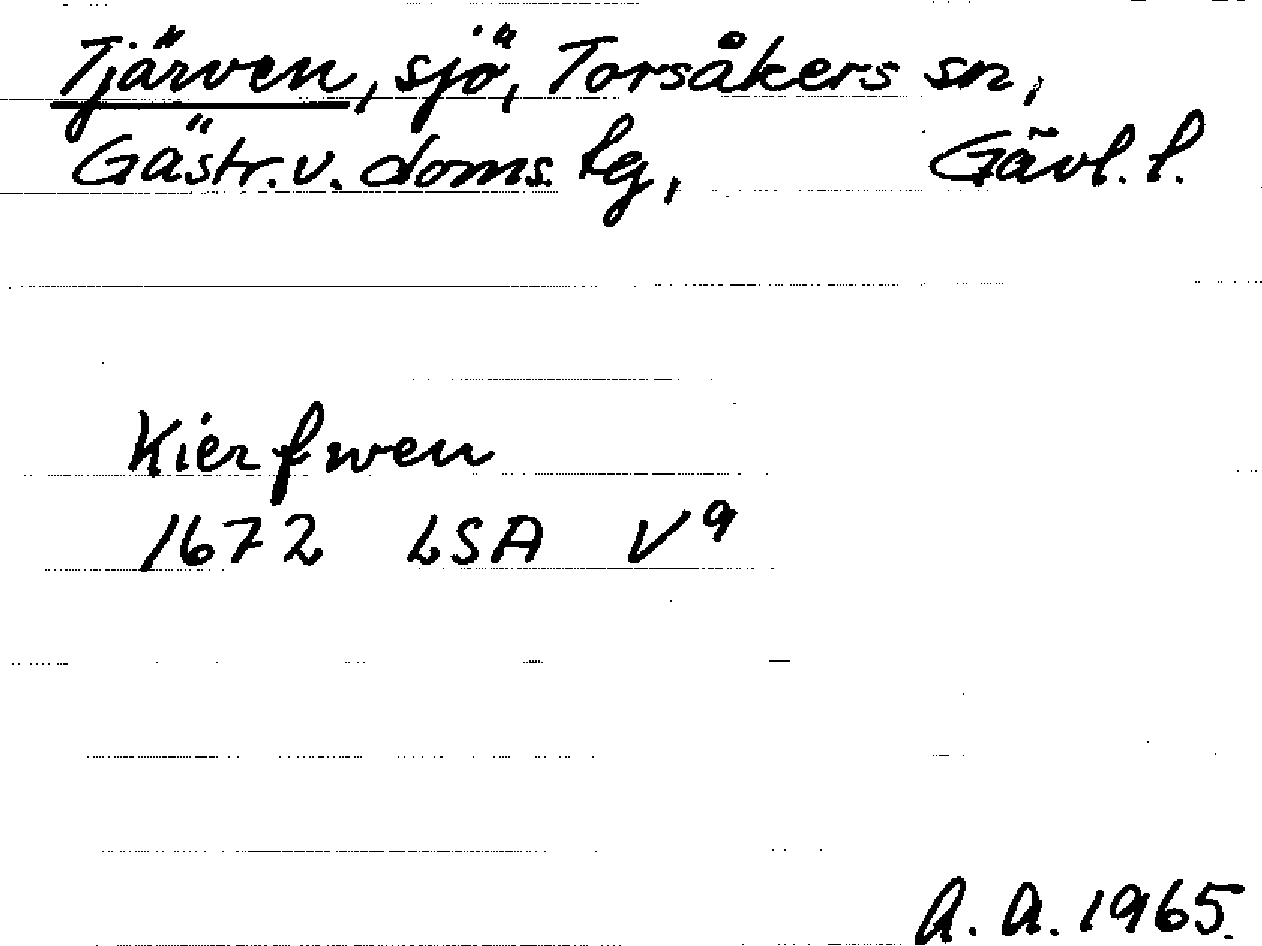 Tjärven, sjö, Torsåkers sn,
Gästr.v. doms. lg, Gävl. l.
Kierfwen
1672 LSA V9
A. A. 1965.